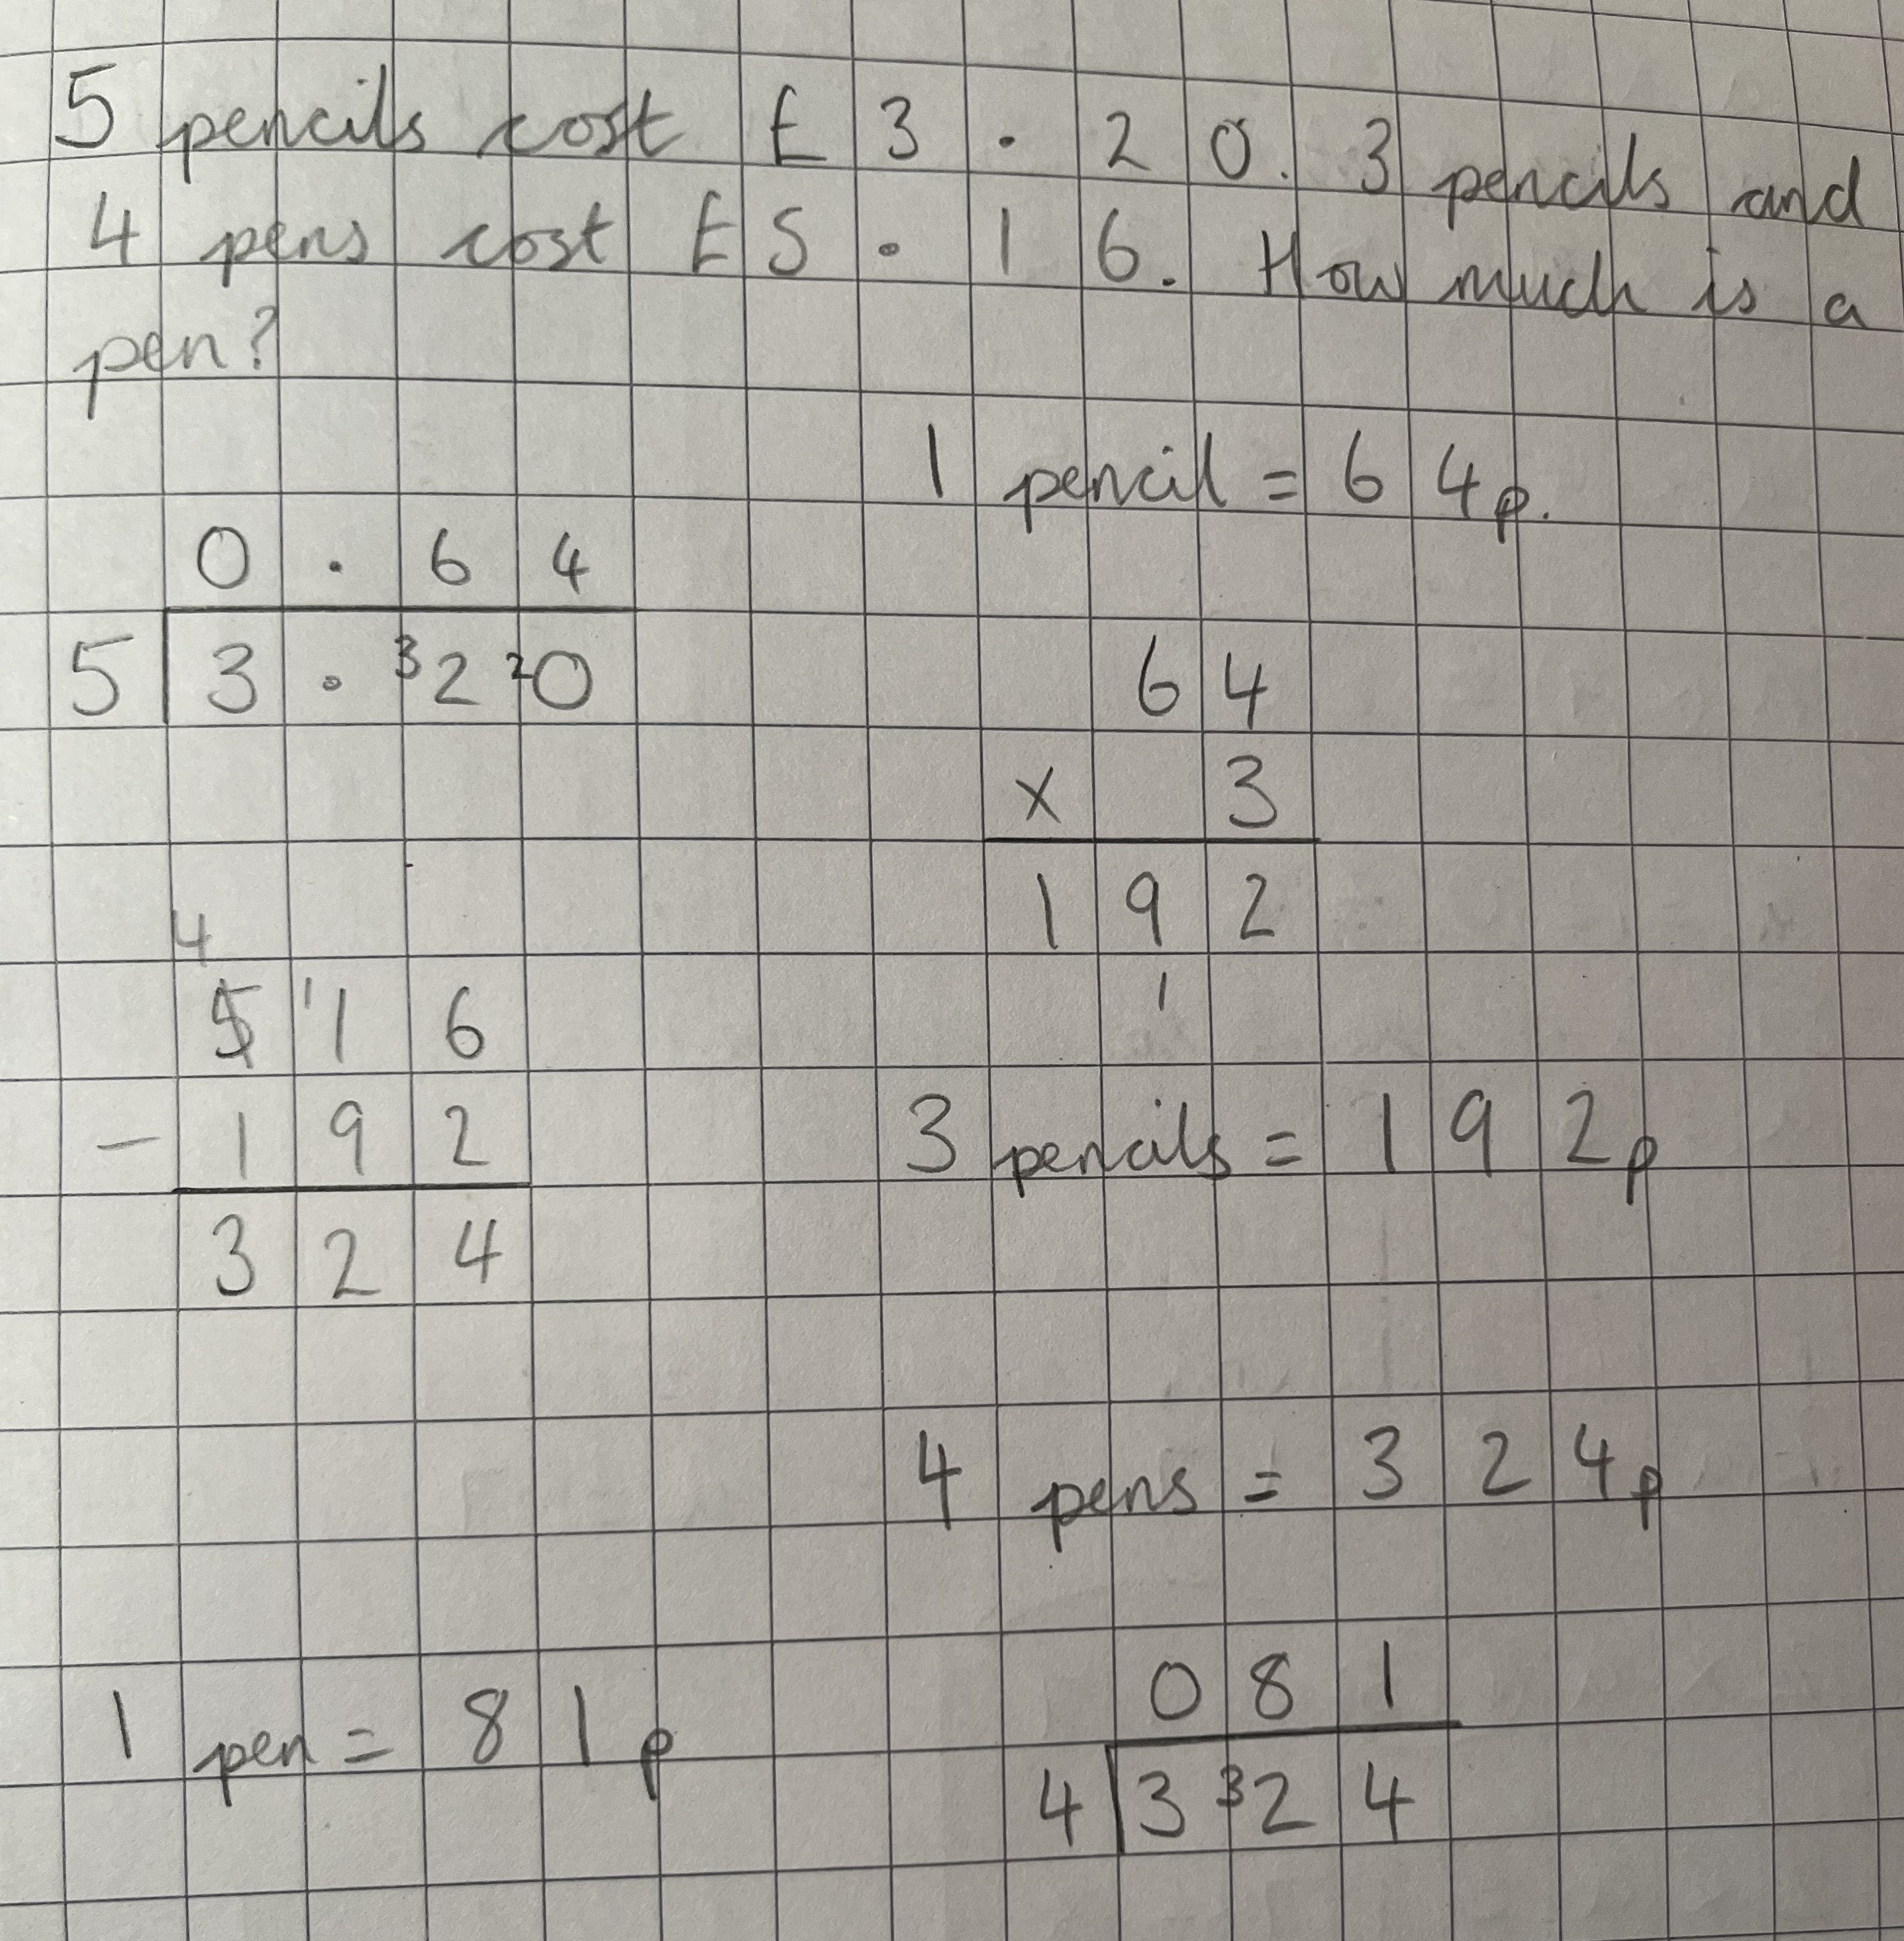 5 pencils cost £3.20. 3 pencils and
4 pens cost £5.16. How much is a
pen?
1 pencil = 64p.
0.64
5 3.³2²0
64
× 3
192
1
4
5 ¹1 6
- 192
324
3 pencils = 192p
4 pens = 324p
081
4 3³24
1 pen = 81p